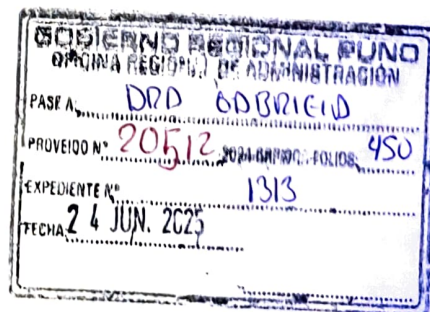 GOBIERNO REGIONAL PUNO
OFICINA REGIONAL DE ADMINISTRACIÓN
PASE A:
PROVEIDO N° 20512 FOLIOS: 450
EXPEDIENTE N° 1313
FECHA: 24 JUN. 2025